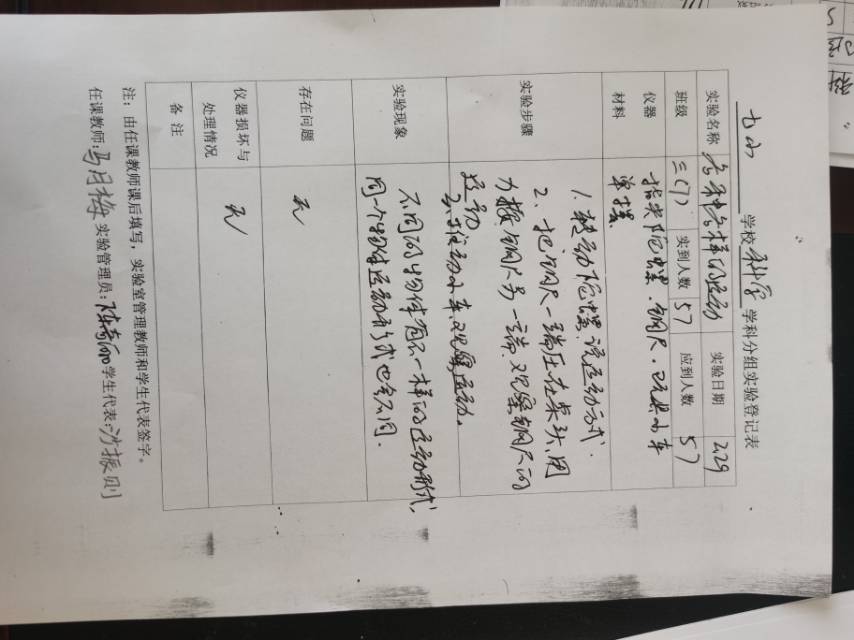 七小 学校 科学 学科分组实验登记表
实验名称 各种各样的运动 实验日期 2.29
班级 三(7) 实到人数 57 应到人数 57
仪器 指尖陀螺、钢尺、玩具小车
材料 单摆
实验步骤
1. 转动陀螺,说运动方式.
2、把钢尺一端压在桌头,用
力按钢尺另一端,观察钢尺的
运动
3、推动小车,观察运动。
实验现象
不同的物体有不一样的运动形式,
同一个物体运动形式也会不同.
存在问题 无
仪器损坏与
处理情况 无
备注
注:由任课教师课后填写,实验室管理教师和学生代表签字。
任课教师:马月梅 实验管理员: 学生代表:沙振则